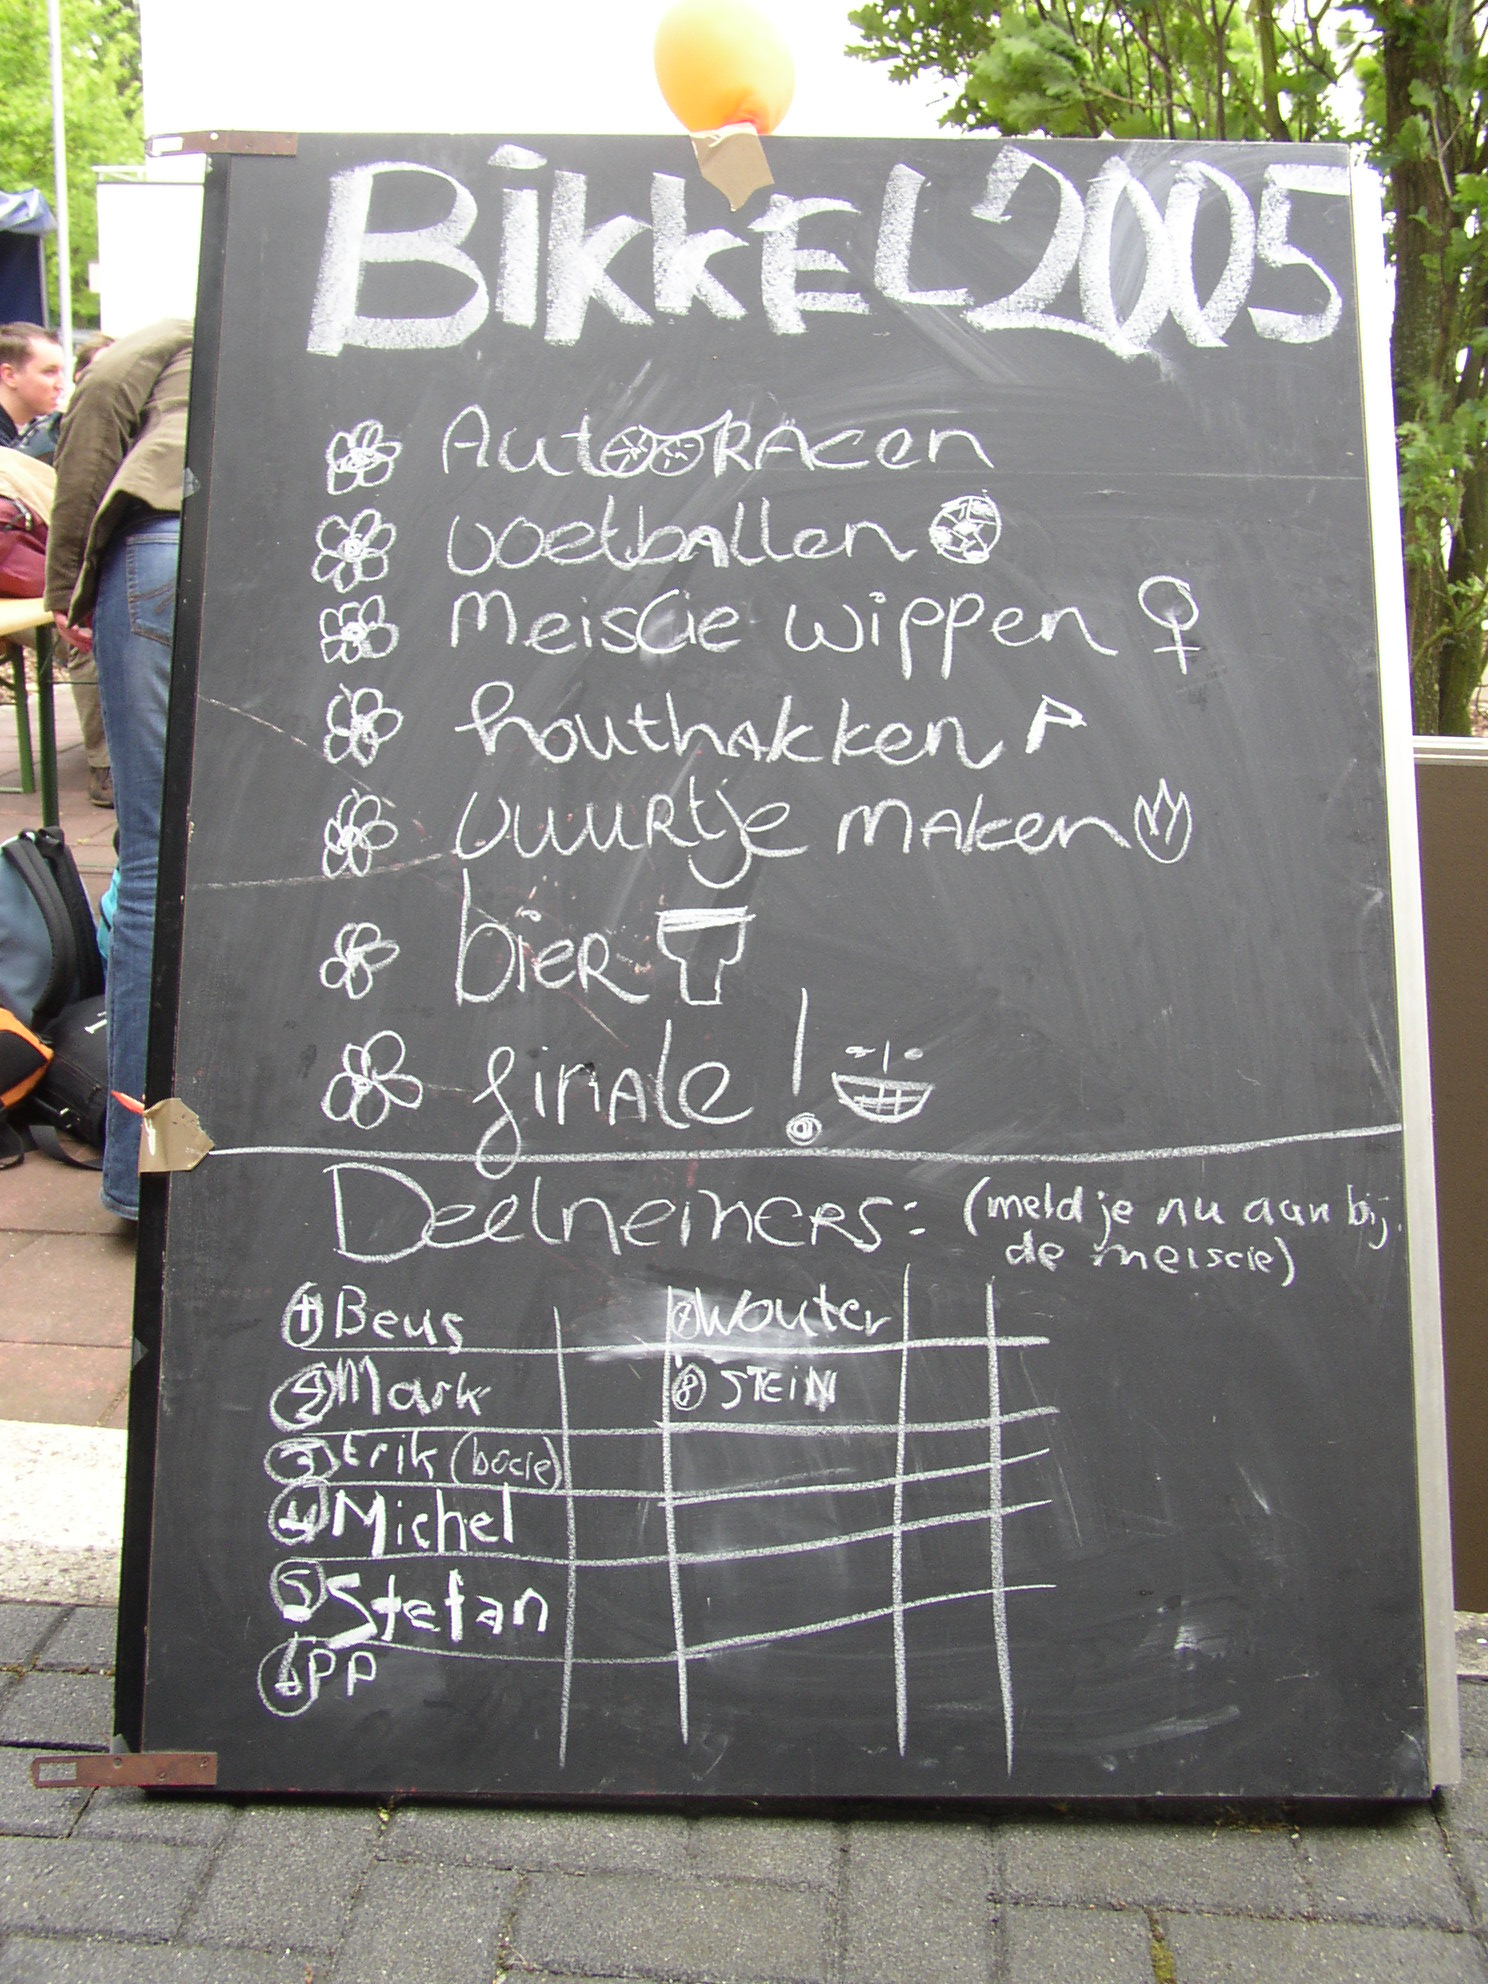 BikkEL 2005
AutooRAcen
voetbAllen
Meiscie wippen
houthakken
vuuurtje maken
bier
finale!
Deelnemers: (meld je nu aan bij
de meiscie)
1 Beus
7 Wouter
2 Mark
8 STEiN
3 Erik (bocie)
4 Michel
5 Stefan
6 PP